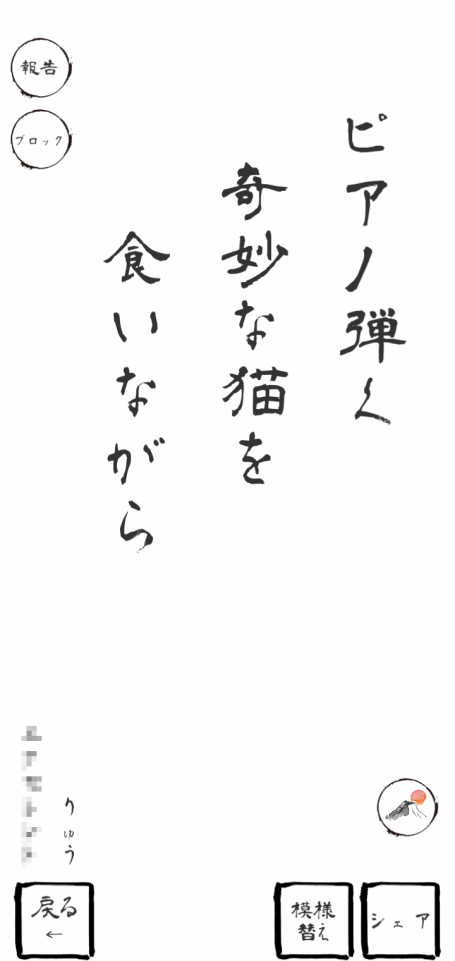 報告
ブロック
ピアノ弾く
奇妙な猫を
食いながら
りゅう
戻る
←
模様
替え
シェア